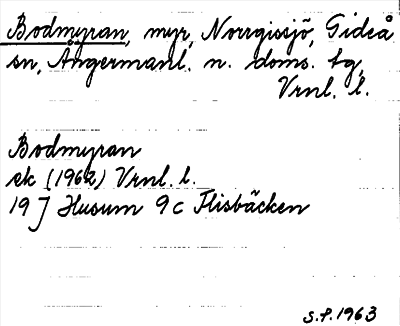 Bodmyran, myr, Norrgissjö, Gideå
sn, Ångermanl. n. doms. tg,
Vrnl. l.
Bodmyran
ek (1962) Vrnl. l.
19 J Husum 9c Flisbäcken
S.P. 1963